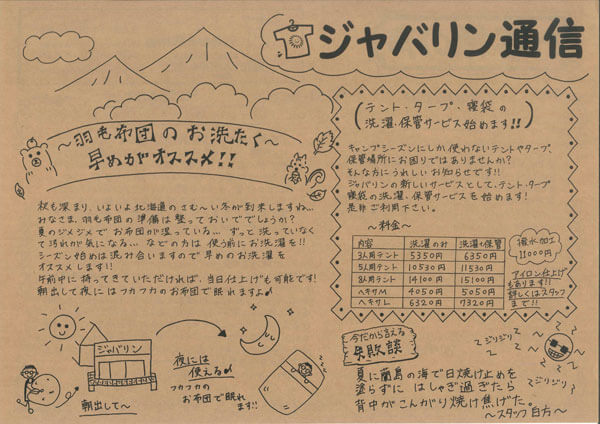 ジャバリン通信
～羽毛布団のお洗たく～
早めがオススメ!!
秋も深まり、いよいよ北海道のさむ～い冬が到来しますね…
みなさま、羽毛布団の準備は整っておいででしょうか?
夏のジメジメでお布団が湿っている…ずっと洗っていなく
て汚れが気になる…などの方は使う前にお洗濯を!!
シーズン始めは混み合いますので早めのお洗濯を
オススメします!!
午前中に持ってきていただければ、当日仕上げも可能です!
朝出して夜にはフカフカのお布団で眠れますよ♪
ジャバリン
朝出して～
夜には
使える♪
フカフカの
お布団で眠れ
ます!!
テント・タープ・寝袋の
洗濯・保管サービス始めます!!
キャンプシーズンにしか使わないテントやタープ、
保管場所にお困りではありませんか?
そんな方にうれしいお知らせです!!
ジャバリンの新しいサービスとして、テント・タープ
寝袋の洗濯、保管サービスを始めます!
是非ご利用下さい。
～料金～
内容 洗濯のみ 洗濯+保管
3人用テント 5350円 6350円
5人用テント 10530円 11530円
8人用テント 14100円 15100円
ヘキサM 4050円 5050円
ヘキサL 6320円 7320円
撥水加工
11000円
アイロン仕上げ
もあります!!
詳しくはスタッフ
まで!!
今だから言える
失敗談
ジリジリ
ジリジリ
夏に蘭島の海で日焼け止めを
塗らずにはしゃぎ過ぎたら
背中がこんがり焼け焦げた。
～スタッフ白方～